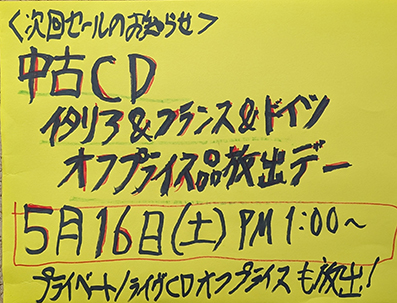 ＜次回セールのお知らせ＞
中古CD
イタリア&フランス&ドイツ
オフプライス品放出デー
5月16日(土)PM 1:00～
プライベート/ライヴCDオフプライスも放出!